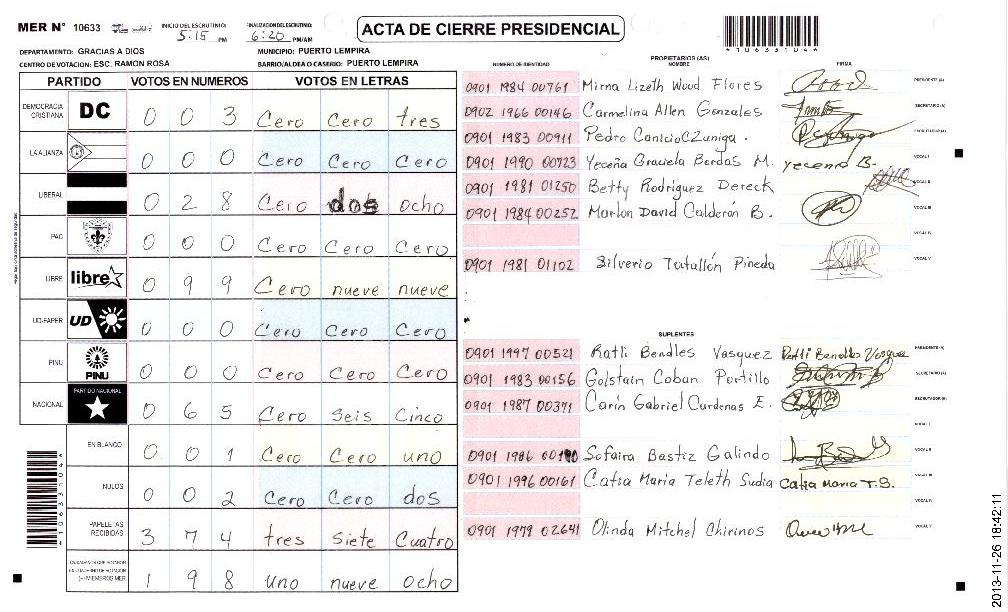 MER N° 10633 INICIO DEL ESCRUTINIO: 5:15 PM FINALIZACION DEL ESCRUTINIO: 6:20 PM/AM
ACTA DE CIERRE PRESIDENCIAL
*1063310 4*
DEPARTAMENTO: GRACIAS A DIOS MUNICIPIO: PUERTO LEMPIRA
CENTRO DE VOTACION: ESC. RAMON ROSA BARRIO/ALDEA O CASERIO: PUERTO LEMPIRA
PARTIDO VOTOS EN NUMEROS VOTOS EN LETRAS
DEMOCRACIA CRISTIANA DC 0 0 3 Cero Cero tres
LA ALIANZA 0 0 0 Cero Cero Cero
LIBERAL 0 2 8 Cero dos ocho
PAC 0 0 0 Cero Cero Cero
LIBRE libre 0 9 9 Cero nueve nueve
UD-FAPER UD 0 0 0 Cero Cero Cero
PINU PINU 0 0 0 Cero Cero Cero
NACIONAL PARTIDO NACIONAL 0 6 5 Cero Seis Cinco
EN BLANCO 0 0 1 Cero Cero uno
NULOS 0 0 2 Cero Cero dos
PAPELETAS RECIBIDAS 3 7 4 tres Siete Cuatro
CIUDADANOS QUE VOTARON EN CUADERNO DE VOTACION (+) MIEMBROS MER 1 9 8 uno nueve ocho
PROPIETARIOS (AS)
NÚMERO DE IDENTIDAD NOMBRE FIRMA
0901 1984 00761 Mirna Lizeth Wood Flores PRESIDENTE (A)
0902 1966 00146 Carmelina Allen Gonzales SECRETARIO (A)
0901 1983 00911 Pedro Zuniga . ESCRUTADOR (A)
0901 1990 00723 Yeceña Graciela Bordas M. yecenia B. VOCAL I
0901 1981 01250 Betty Rodriguez Dereck VOCAL II
0901 1984 00252 Marlon David Calderón B. VOCAL III
VOCAL IV
0901 1981 01102 Silverio Tatallón Pineda VOCAL V
SUPLENTES
0901 1997 00521 Ratli Bendles Vasquez Ratli Bendles Vasquez PRESIDENTE (A)
0901 1983 00156 Golstain Coban Portillo SECRETARIO (A)
0901 1987 00371 Carin Gabriel Cardenas E. ESCRUTADOR (A)
VOCAL I
0901 1986 Sofaira Bastiz Galindo VOCAL II
0901 1996 00161 Catia Maria Teleth Sudia Catia Maria T.S. VOCAL III
VOCAL IV
0901 1979 02641 Olinda Mitchel Chirinos VOCAL V
2013-11-26 18:42:11